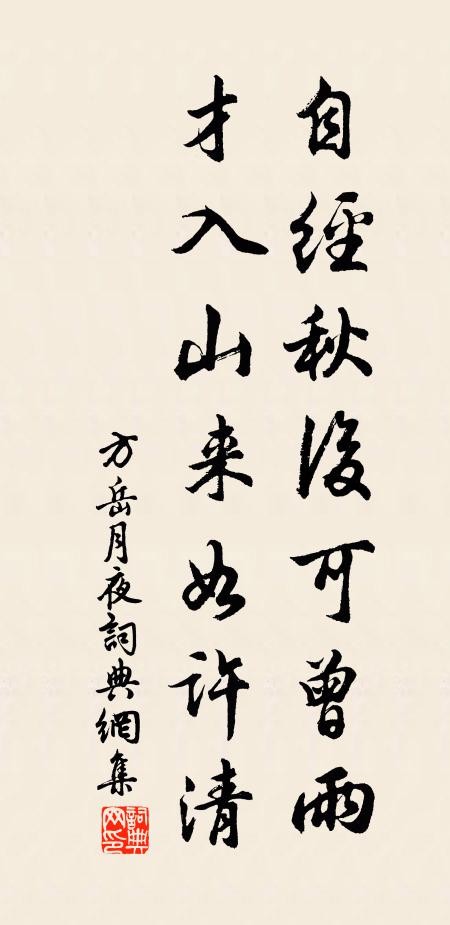 自經秋後可曾雨
才入山来如許清
方岳月夜詞典網集
詞典网印